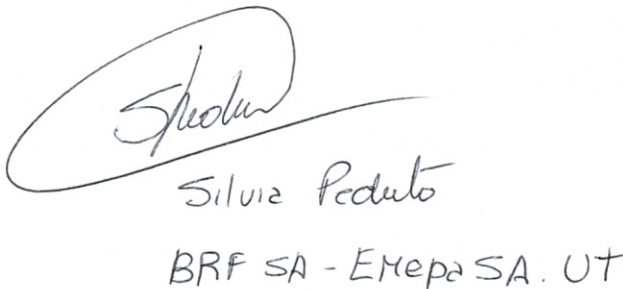 SPeduto
Silvia Peduto
BRF SA - EMepa SA. UT